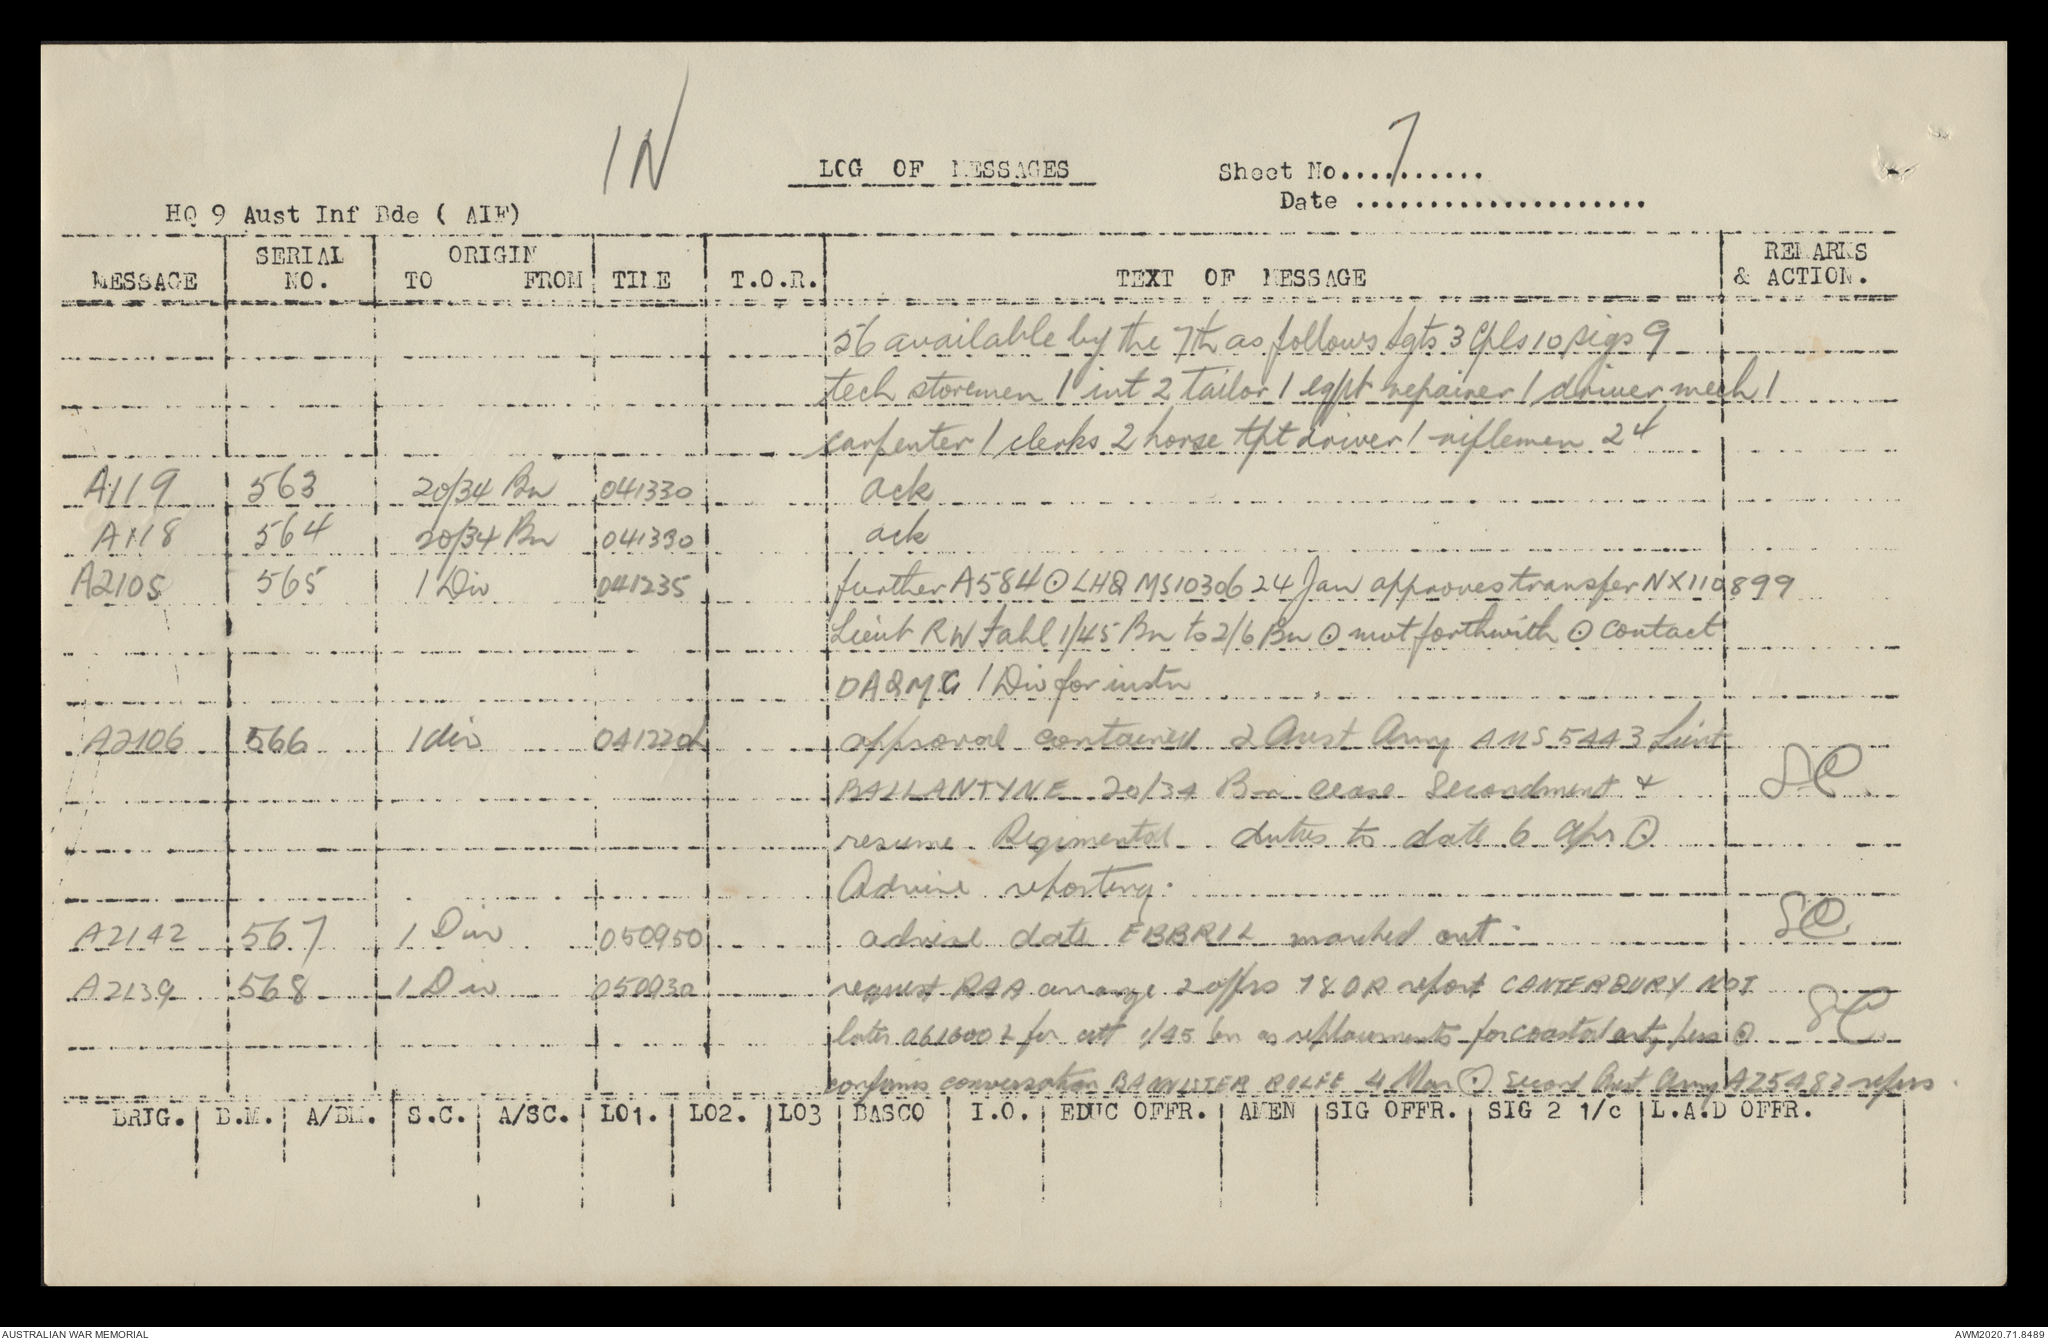 IN
LOG OF MESSAGES
Sheet No....7......
Date ....................
HQ 9 Aust Inf Bde ( AIF)
MESSAGE | SERIAL NO. | ORIGIN TO FROM | TIME | T.O.R. | TEXT OF MESSAGE | REMARKS & ACTION.
56 available by the 7th as follows sgts 3 Cpls 10 sigs 9
tech storemen 1 int 2 Tailor 1 eqpt repairer 1 driver mech 1
carpenter 1 clerks 2 horse tpt driver 1 riflemen 24
A119 563 20/34 Bn 041330 ack
A118 564 20/34 Bn 041330 ack
A2105 565 1 Div 041235 further A584 ⊙ LHQ MS10306 24 Jan approves transfer NX110899
Lieut RW Fahl 1/45 Bn to 2/6 Bn ⊙ mvt forthwith ⊙ contact
DAQMG 1 Div for instn
A2106 566 1 div 041220L approval contained 2 Aust Army AMS 5443 Lieut
BALLANTYNE 20/34 Bn cease Secondment & SC
resume Regimental duties to date 6 Apr ⊙
Advise reporting.
A2142 567 1 Div 050950 advise date EBBRIL marched out. SC
A2139 568 1 Div 050930 request RAA arrange 2 offrs 78 OR report CANTERBURY NOT
later 061600L for att 1/45 bn as replacements for coastal arty pers ⊙ SC
confirms conversation BANNISTER ROLFE 4 Mar ⊙ Second Aust Army A25482 refers
BRIG. | B.M. | A/BM. | S.C. | A/SC. | LO1. | LO2. | LO3 | BASCO | I.O. | EDUC OFFR. | AMEN | SIG OFFR. | SIG 2 1/c | L.A.D OFFR.
AUSTRALIAN WAR MEMORIAL
AWM2020.71.8489